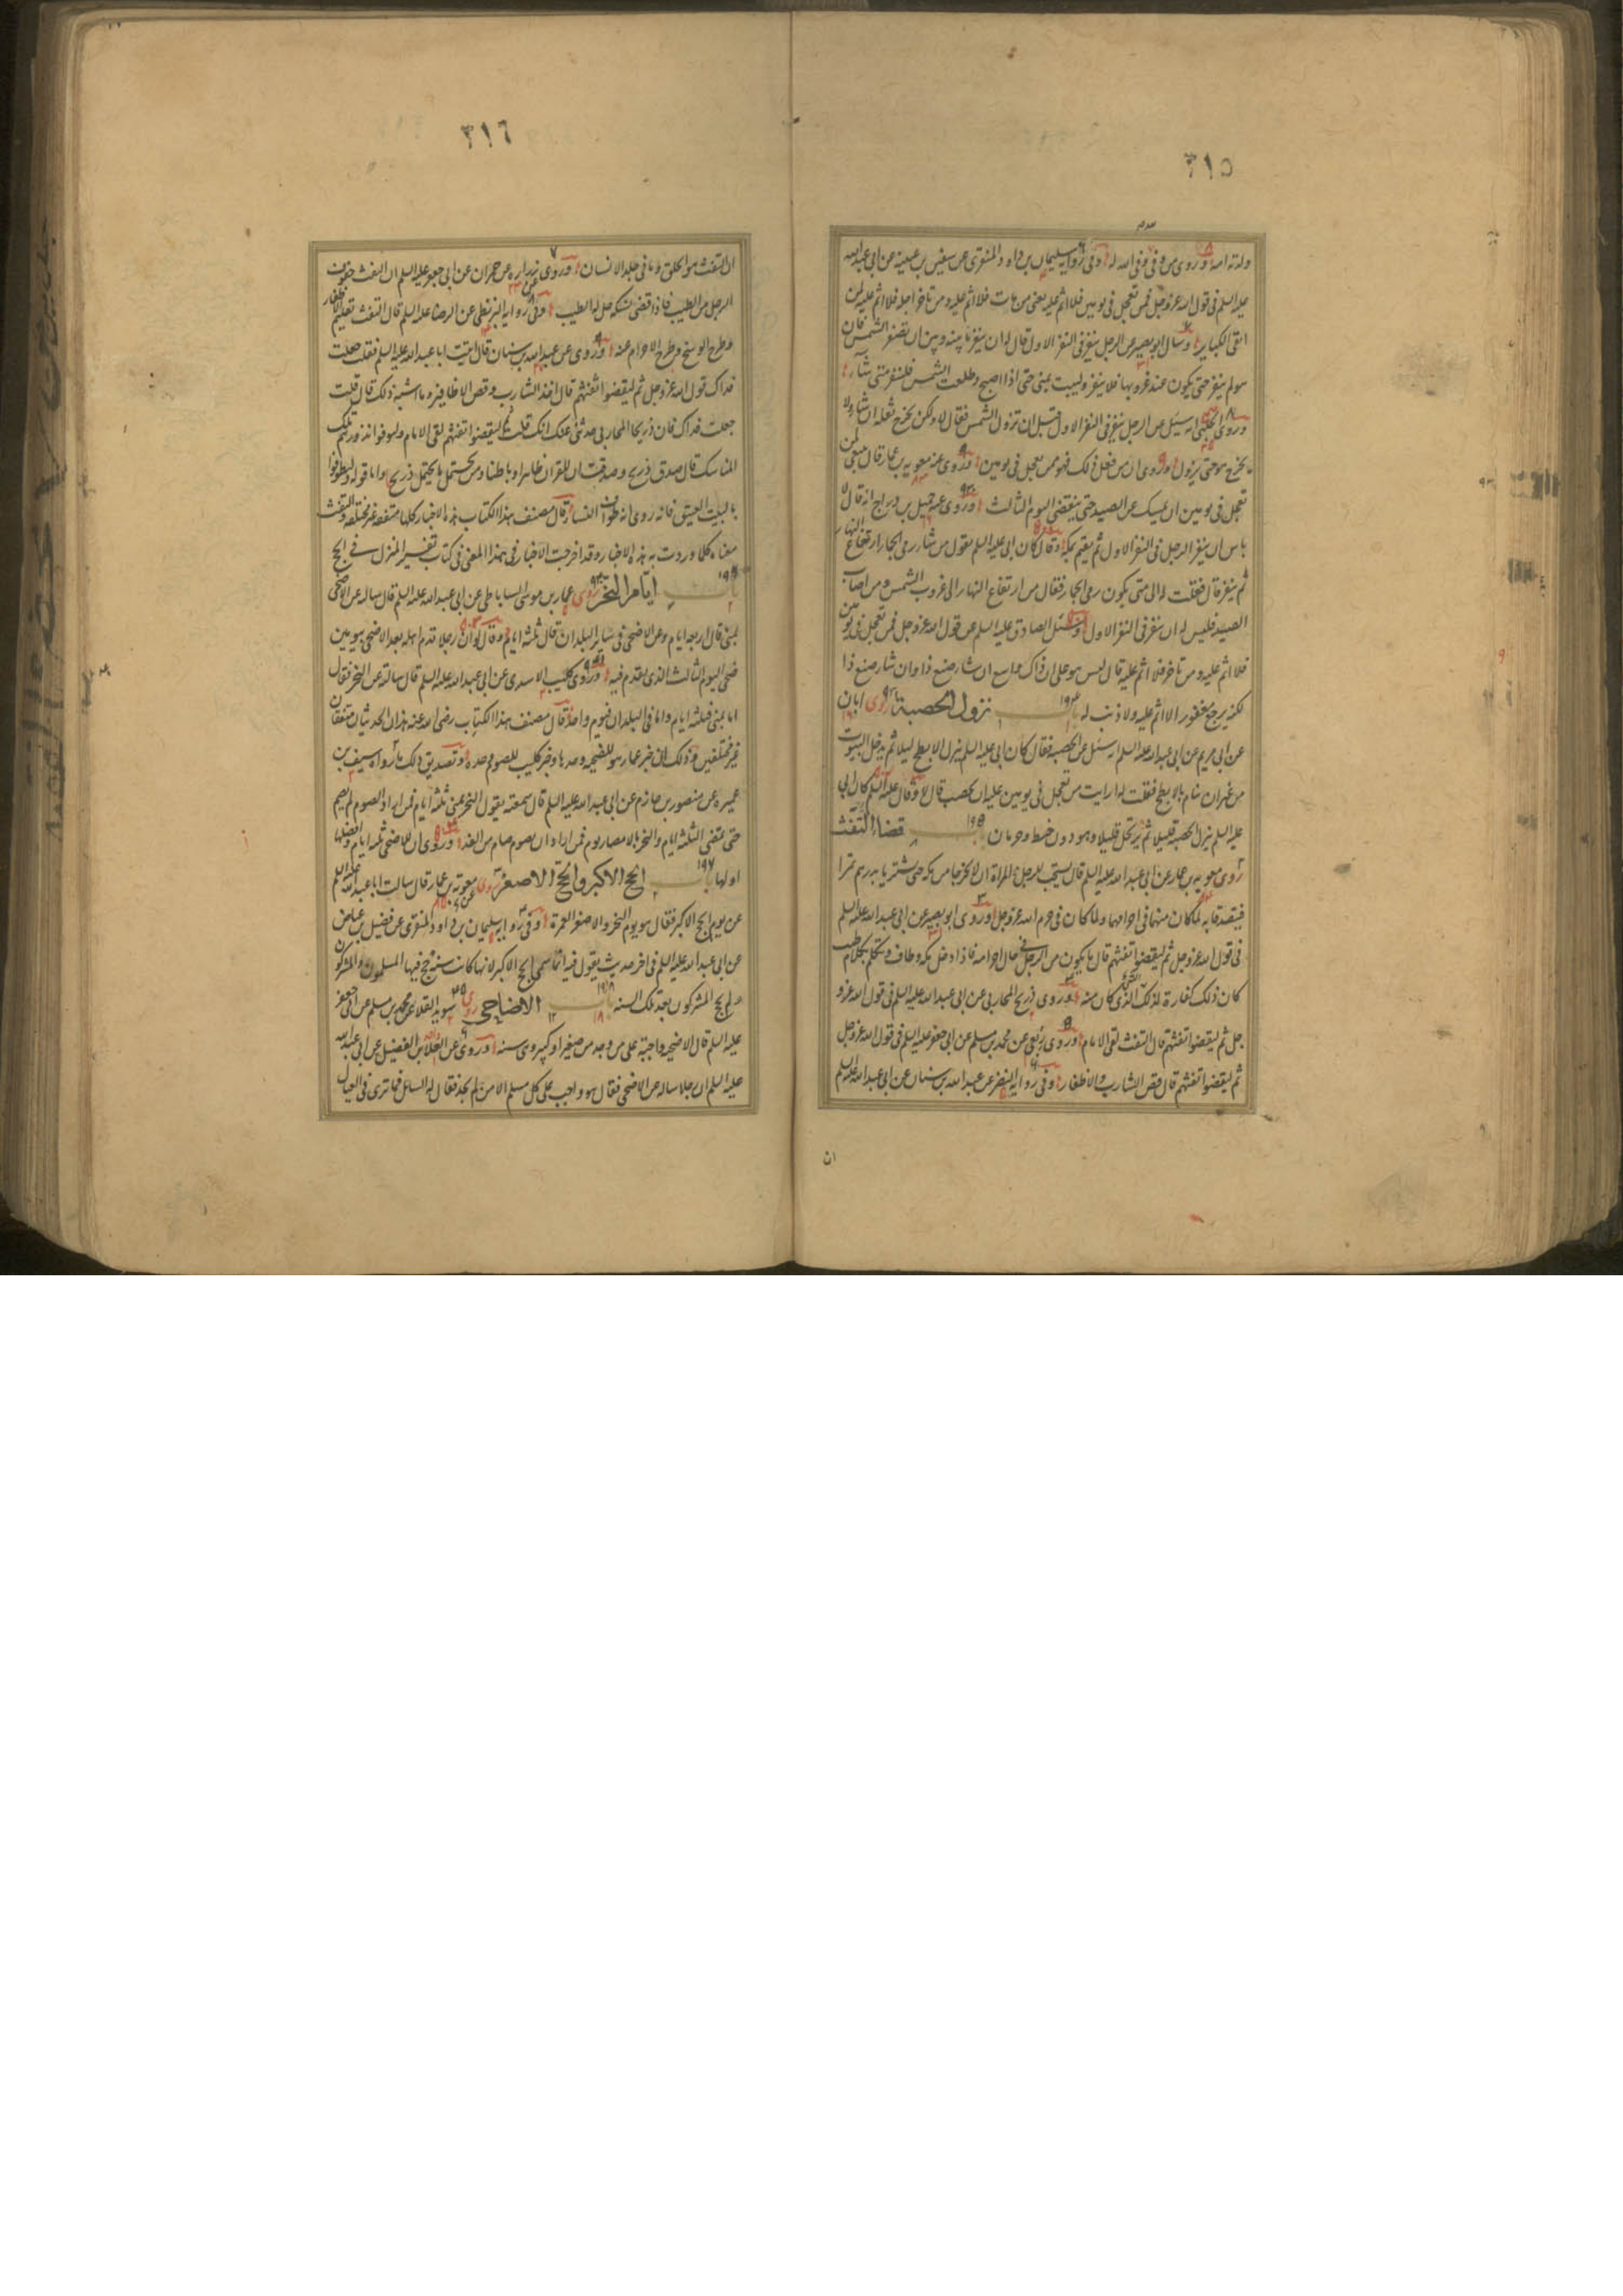 ٣١٥
ولدته امه وروى من وفى وفى الله له وفى رواية سليمان بن داود المنقرى عن سفين بن عيينة عن ابى عبدالله
عليه السلم فى قول الله عز وجل فمن تعجل فى يومين فلا اثم عليه يعنى من مات فلا اثم عليه ومن تاخر اجله فلا اثم عليه لمن
اتقى الكباير وسال ابو بصير عن الرجل ينفر فى النفر الاول قال له ان ينفر ما بينه وبين ان تصفر الشمس فان
هو لم ينفر حتى يكون عند غروبها فلا ينفر وليبت بمنى حتى اذا اصبح وطلعت الشمس فلينفر متى شاء
وروى الحلبى انه سئل عن الرجل ينفر فى النفر الاول قبل ان تزول الشمس فقال لا ولكن يخرج ثقله ان شاء ولا
يخرج هو حتى يزول وروى ان من فعل ذلك فهو ممن تعجل فى يومين وروى عنه معوية بن عمار قال ينبغى لمن
تعجل فى يومين ان يمسك عن الصيد حتى ينقضى اليوم الثالث وروى عنه جميل بن دراج انه قال لا
باس ان ينفر الرجل فى النفر الاول ثم يقيم بمكة وقال كان ابى عليه السلم يقول من شاء رمى الجمار ارتفاع النهار
ثم ينفر قال فقلت له الى متى يكون رمى الجمار فقال من ارتفاع النهار الى غروب الشمس ومن اصاب
الصيد فليس له ان ينفر فى النفر الاول وسئل الصادق عليه السلم عن قول الله عز وجل فمن تعجل فى يومين
فلا اثم عليه ومن تاخر فلا اثم عليه قال ليس هو على ان ذاك واسع ان شاء صنع ذا وان شاء صنع ذا
لكنه يرجع مغفورا لا اثم عليه ولا ذنب له باب ١٩٤ نزول الحصبة روى ابان
عن ابى مريم عن ابى عبدالله عليه السلم انه سئل عن الحصبة فقال كان ابى عليه السلم ينزل الابطح قليلا ثم يدخل البيوت
من غير ان ينام بالابطح فقلت له ارايت من تعجل فى يومين عليه ان يحصب قال لا وقال عليه السلم كان ابى
عليه السلم ينزل الحصبة قليلا ثم يرتحل قليلا وهو دون خبط وحرمان باب ١٩٥ قضاء التفث
روى معوية بن عمار عن ابى عبدالله عليه السلم قال يستحب للرجل والمراة ان لا يخرجا من مكة حتى يشتريا بدرهم تمرا
فيتصدقا به لما كان منهما فى احرامهما ولما كان فى حرم الله عز وجل وروى ابو بصير عن ابى عبدالله عليه السلم
فى قول الله عز وجل ثم ليقضوا تفثهم قال ما يكون من الرجل فى حال احرامه فاذا دخل مكة وطاف وتكلم بكلام طيب
كان ذلك كفارة لذلك الذى كان منه وروى ذريح المحاربى عن ابى عبدالله عليه السلم فى قول الله عز و
جل ثم ليقضوا تفثهم قال التفث لقى الامام وروى ربعى عن محمد بن مسلم عن ابى جعفر عليه السلم فى قول الله عز وجل
ثم ليقضوا تفثهم قال قص الشارب والاظفار وفى رواية النضر عن عبدالله بن سنان عن ابى عبدالله عليه السلم
ان
٣١٦
ان التفث هو الحلق وما فى جلد الانسان وروى زرارة عن حمران عن ابى جعفر عليه السلم ان التفث حفوف
الرجل من الطيب فاذا قضى نسكه حل له الطيب وفى رواية البزنطى عن الرضا عليه السلم قال التفث تقليم الاظفار
وطرح الوسخ وطرح الاحرام عنه وروى عن عبدالله بن سنان قال اتيت ابا عبدالله عليه السلم فقلت جعلت
فداك قول الله عز وجل ثم ليقضوا تفثهم قال اخذ الشارب وقص الاظافير وما اشبه ذلك قال قلت
جعلت فداك فان ذريحا المحاربى حدثنى عنك انك قلت ثم ليقضوا تفثهم لقى الامام وليوفوا نذورهم تلك
المناسك قال صدق ذريح وصدقت ان للقران ظاهرا وباطنا ومن يحتمل ما يحتمل ذريح واما قوله وليطوفوا
بالبيت العتيق فانه روى انه طواف النساء قال مصنف هذا الكتاب هذه الاخبار كلها متفقة غير مختلفة والتفث
معناه كلما وردت به هذه الاخبار وقد اخرجت الاخبار فى هذا المعنى فى كتاب تفسير المنزل فى الحج
باب ١٩٦ ايام النحر روى عمار بن موسى الساباطى عن ابى عبدالله عليه السلم قال سالته عن الاضحى
بمنى قال اربعة ايام وعن الاضحى فى ساير البلدان قال ثلثة ايام وقال لو ان رجلا قدم اهله بعد الاضحى بيومين
ضحى اليوم الثالث الذى يقدم فيه وروى كليب الاسدى عن ابى عبدالله عليه السلم قال سالته عن النحر فقال
اما بمنى فثلثة ايام واما فى البلدان فيوم واحد قال مصنف هذا الكتاب رضى الله عنه هذان الحديثان متفقان
غير مختلفين وذلك ان خبر عمار هو للضحية وحدها وخبر كليب للصوم وحده وتصديق ذلك ما رواه سيف بن
عميرة عن منصور بن حازم عن ابى عبدالله عليه السلم قال سمعته يقول النحر بمنى ثلثة ايام فمن اراد الصوم لم يصم
حتى تمضى الثلثة الايام والنحر بالامصار يوم فمن اراد ان يصوم صام من الغد وروى ان الاضحى ثلثة ايام وافضلها
اولها باب ١٩٧ الحج الاكبر والحج الاصغر روى معوية بن عمار قال سالت ابا عبدالله عليه السلم
عن يوم الحج الاكبر فقال هو يوم النحر والاصغر العمرة وفى رواية سليمان بن داود المنقرى عن فضيل بن عياض
عن ابى عبدالله عليه السلم فى اخر حديث يقول فيه انما سمى الحج الاكبر لانها كانت سنة حج فيها المسلمون والمشركون
ولم يحج المشركون بعد تلك السنة باب ١٩٨ الاضاحى روى سويد القلا عن محمد بن مسلم عن ابى جعفر
عليه السلم قال الاضحية واجبة على من وجد من صغير او كبير وهى سنة وروى عن العلا بن الفضيل عن ابى عبدالله
عليه السلم ان رجلا ساله عن الاضحى فقال هو واجب على كل مسلم الا من لم يجد فقال له السائل فما ترى فى العيال